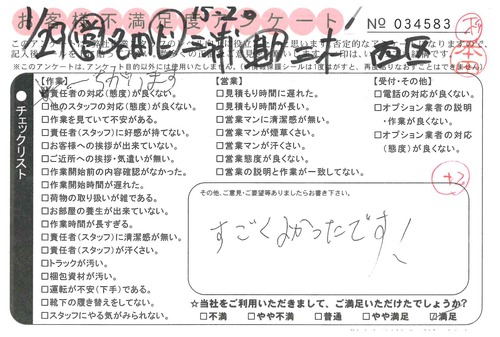 お客様不満足度アンケート
15-29
No 034583
※このアンケートは、アンケート目的以外には使用いたしません。
チェックリスト
【作業】
□責任者の対応(態度)が良くない。
□他のスタッフの対応(態度)が良くない。
□作業を見ていて不安がある。
□責任者(スタッフ)に好感が持てない。
□お客様への挨拶が出来ていない。
□ご近所への挨拶・気遣いが無い。
□作業開始前の内容確認がなかった。
□作業開始時間が遅れた。
□荷物の取り扱いが雑である。
□お部屋の養生が出来ていない。
□作業時間が長すぎる。
□責任者(スタッフ)に清潔感が無い。
□責任者(スタッフ)が汗くさい。
□トラックが汚い。
□梱包資材が汚い。
□運転が不安(下手)である。
□靴下の履き替えをしてない。
□スタッフにやる気がみられない。
【営業】
□見積もり時間に遅れた。
□見積もり時間が長い。
□営業マンに清潔感が無い。
□営業マンが煙草くさい。
□営業マンが汗くさい。
□営業態度が良くない。
□営業の説明と作業が一致してない。
【受付・その他】
□電話の対応が良くない。
□オプション業者の説明
・作業が良くない。
□オプション業者の対応
(態度)が良くない。
その他、ご意見・ご要望等ありましたらお書き下さい。
すごくよかったです!
☆当社をご利用いただきまして、ご満足いただけたでしょうか?
□不満 □やや不満 □普通 □やや満足 ☑満足